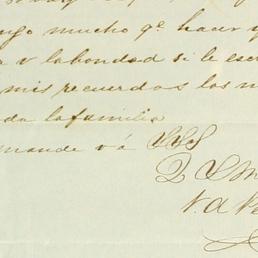 ngo mucho qe hacer y
a v la bondad si le escr
mis recuerdos los m
da la familia
mande v á SSS
Q S M